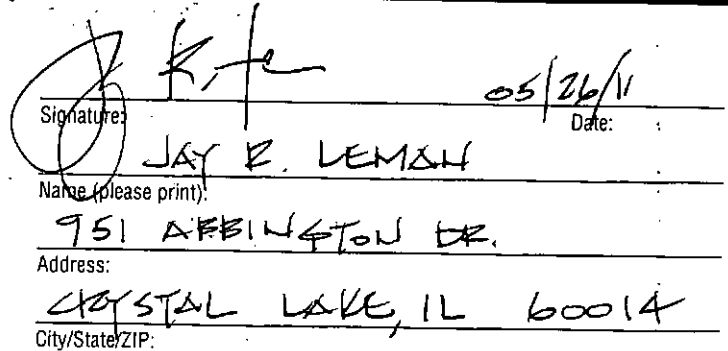 05/26/11
Signature: Date:
JAY R. LEMAN
Name (please print):
951 ABBINGTON DR.
Address:
CRYSTAL LAKE, IL 60014
City/State/ZIP: